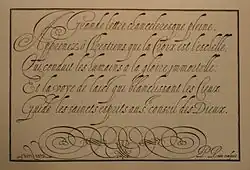 Grande lettre chanceleresque pleine.
Aprenez ô Chretiens que la Croix est l'eschelle,
Qui conduit les humains a la gloire immortelle.
Et la voye de laict qui blanchissant les Cieux
Guide les saincts esprits au conseil des Dieux.